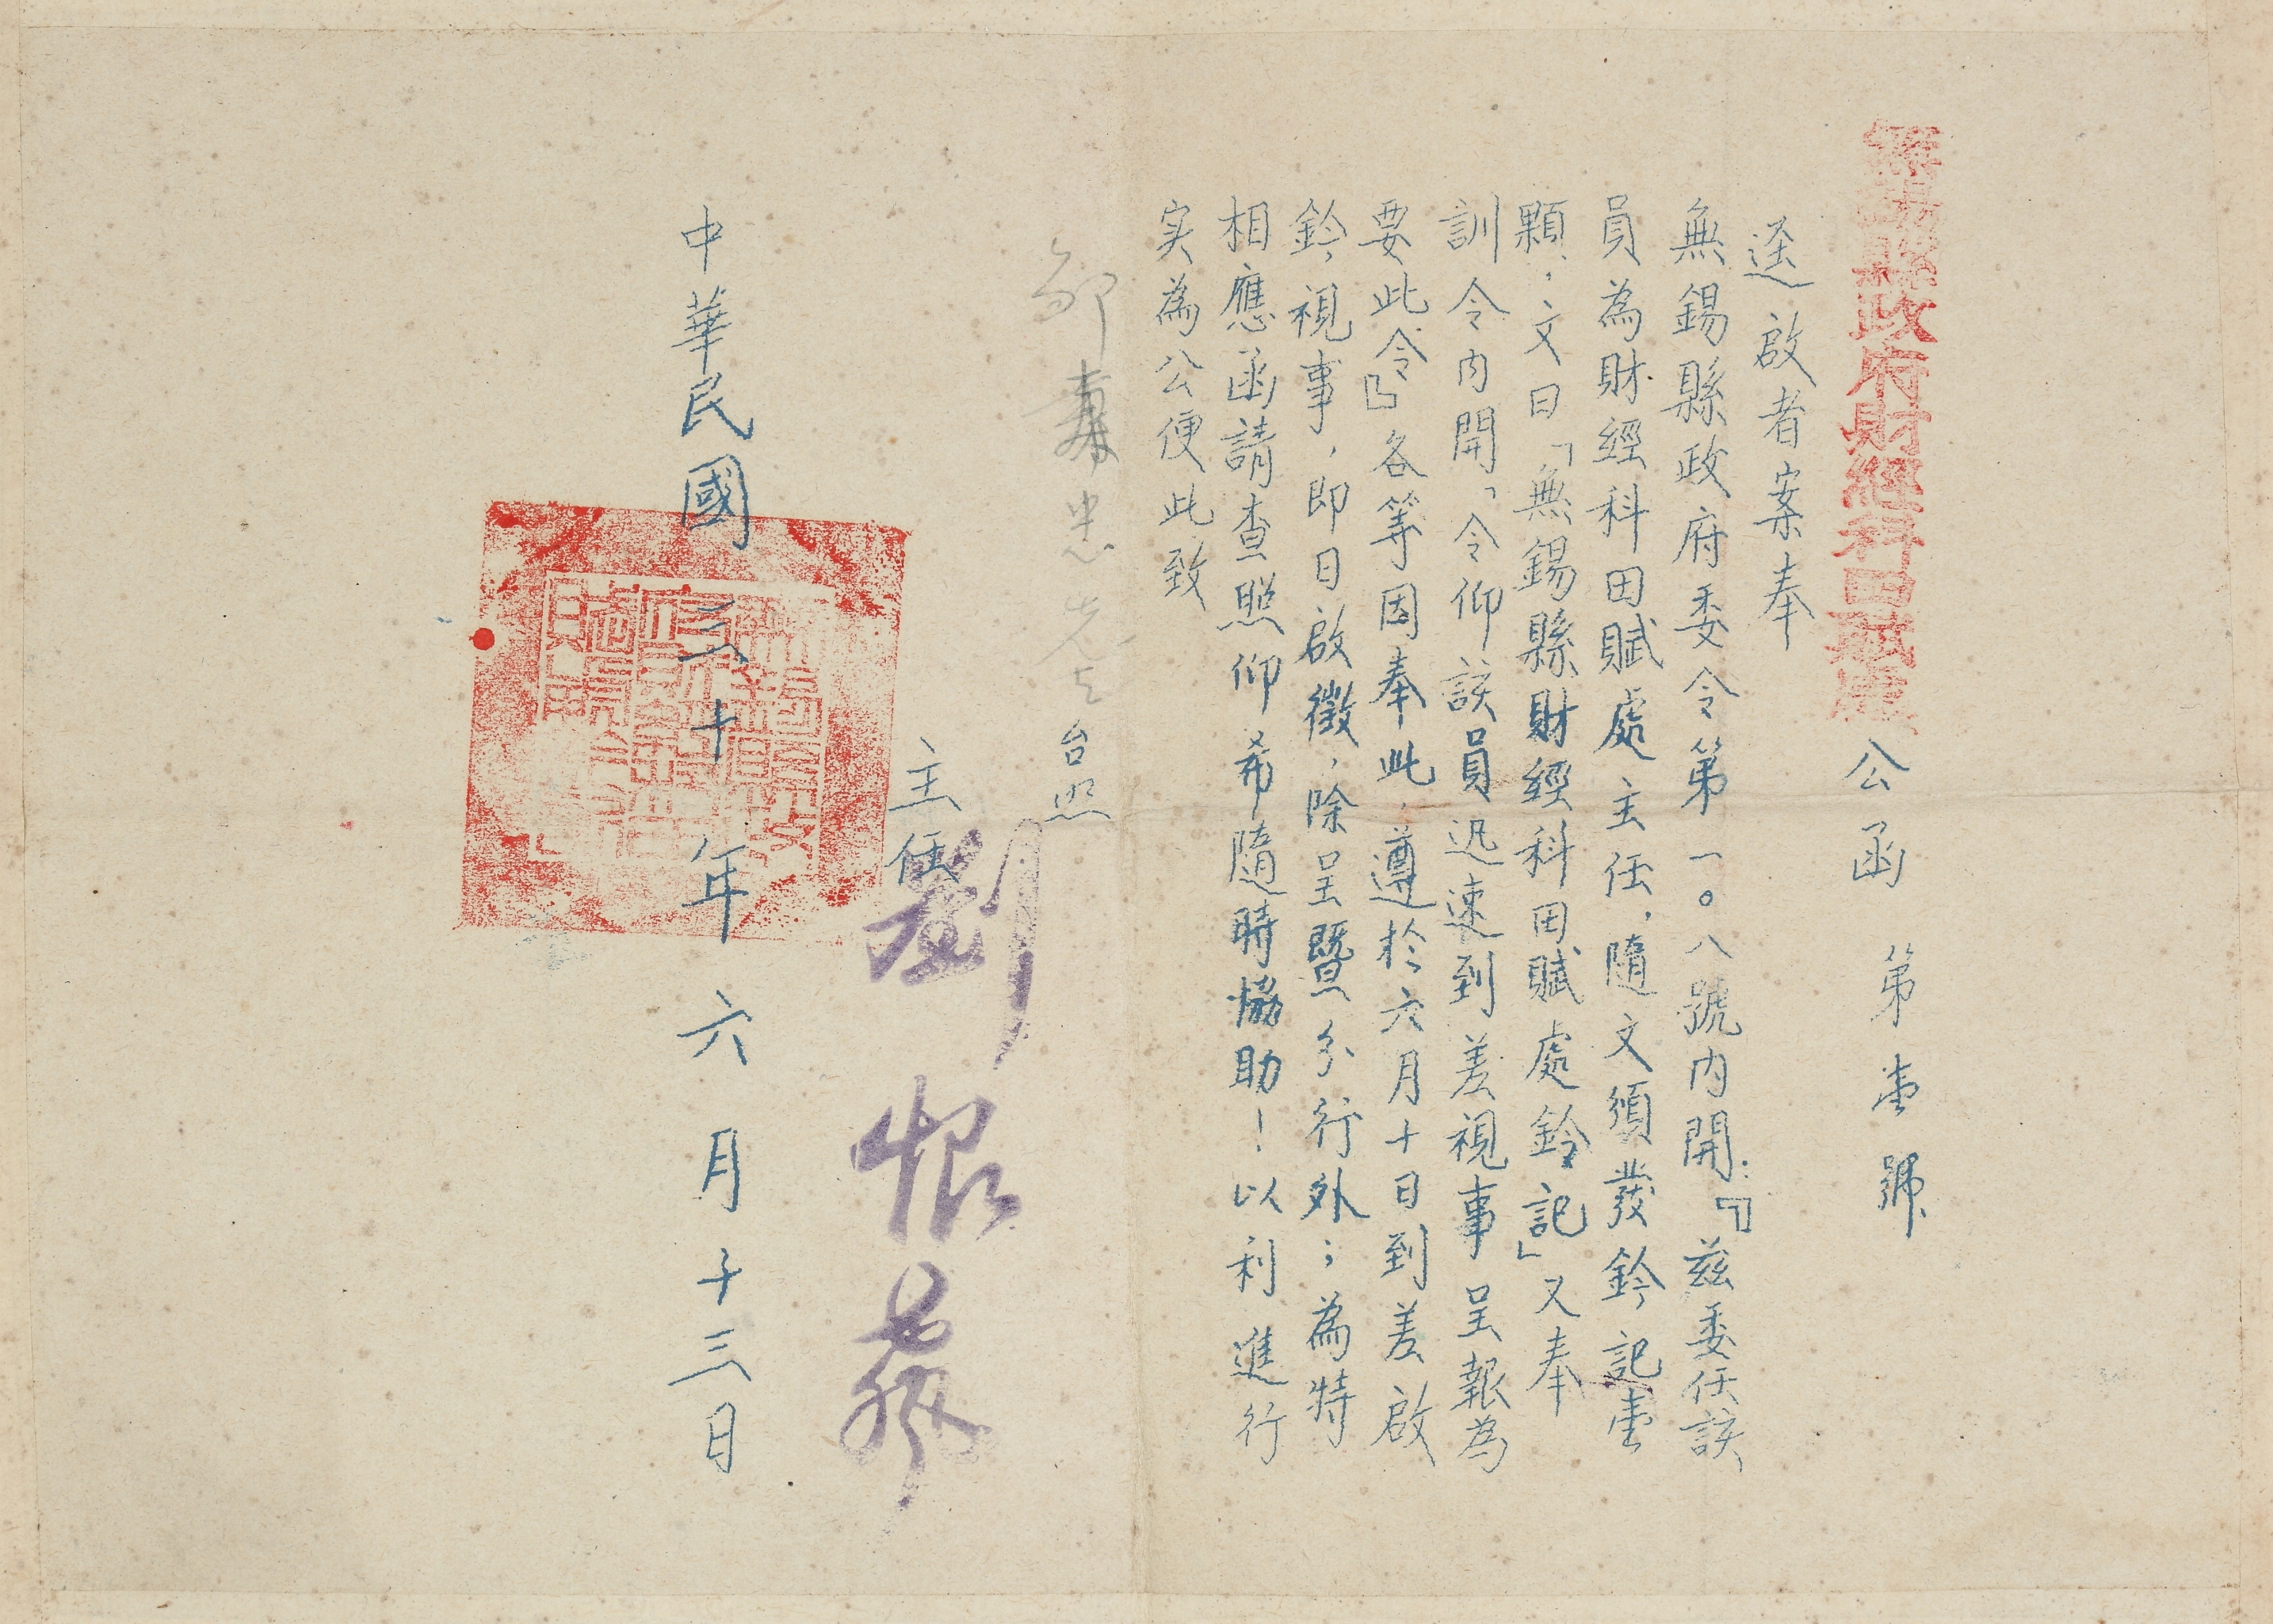 無錫縣政府財經科田賦處公函 第壹號
逕啟者案奉
無錫縣政府委令第一〇八號內開：『茲委任該
員為財經科田賦處主任，隨文頒發鈐記壹
顆，文曰「無錫縣財經科田賦處鈐記」又奉
訓令內開「令仰該員迅速到差視事呈報為
要此令』各等因奉此，遵於六月十日到差啟
鈐視事，即日啟徵，除呈暨分行外；為特
相應函請查照仰希隨時協助！以利進行
实為公便此致
忠先生台照
主任 劉
中華民國三十年六月十三日